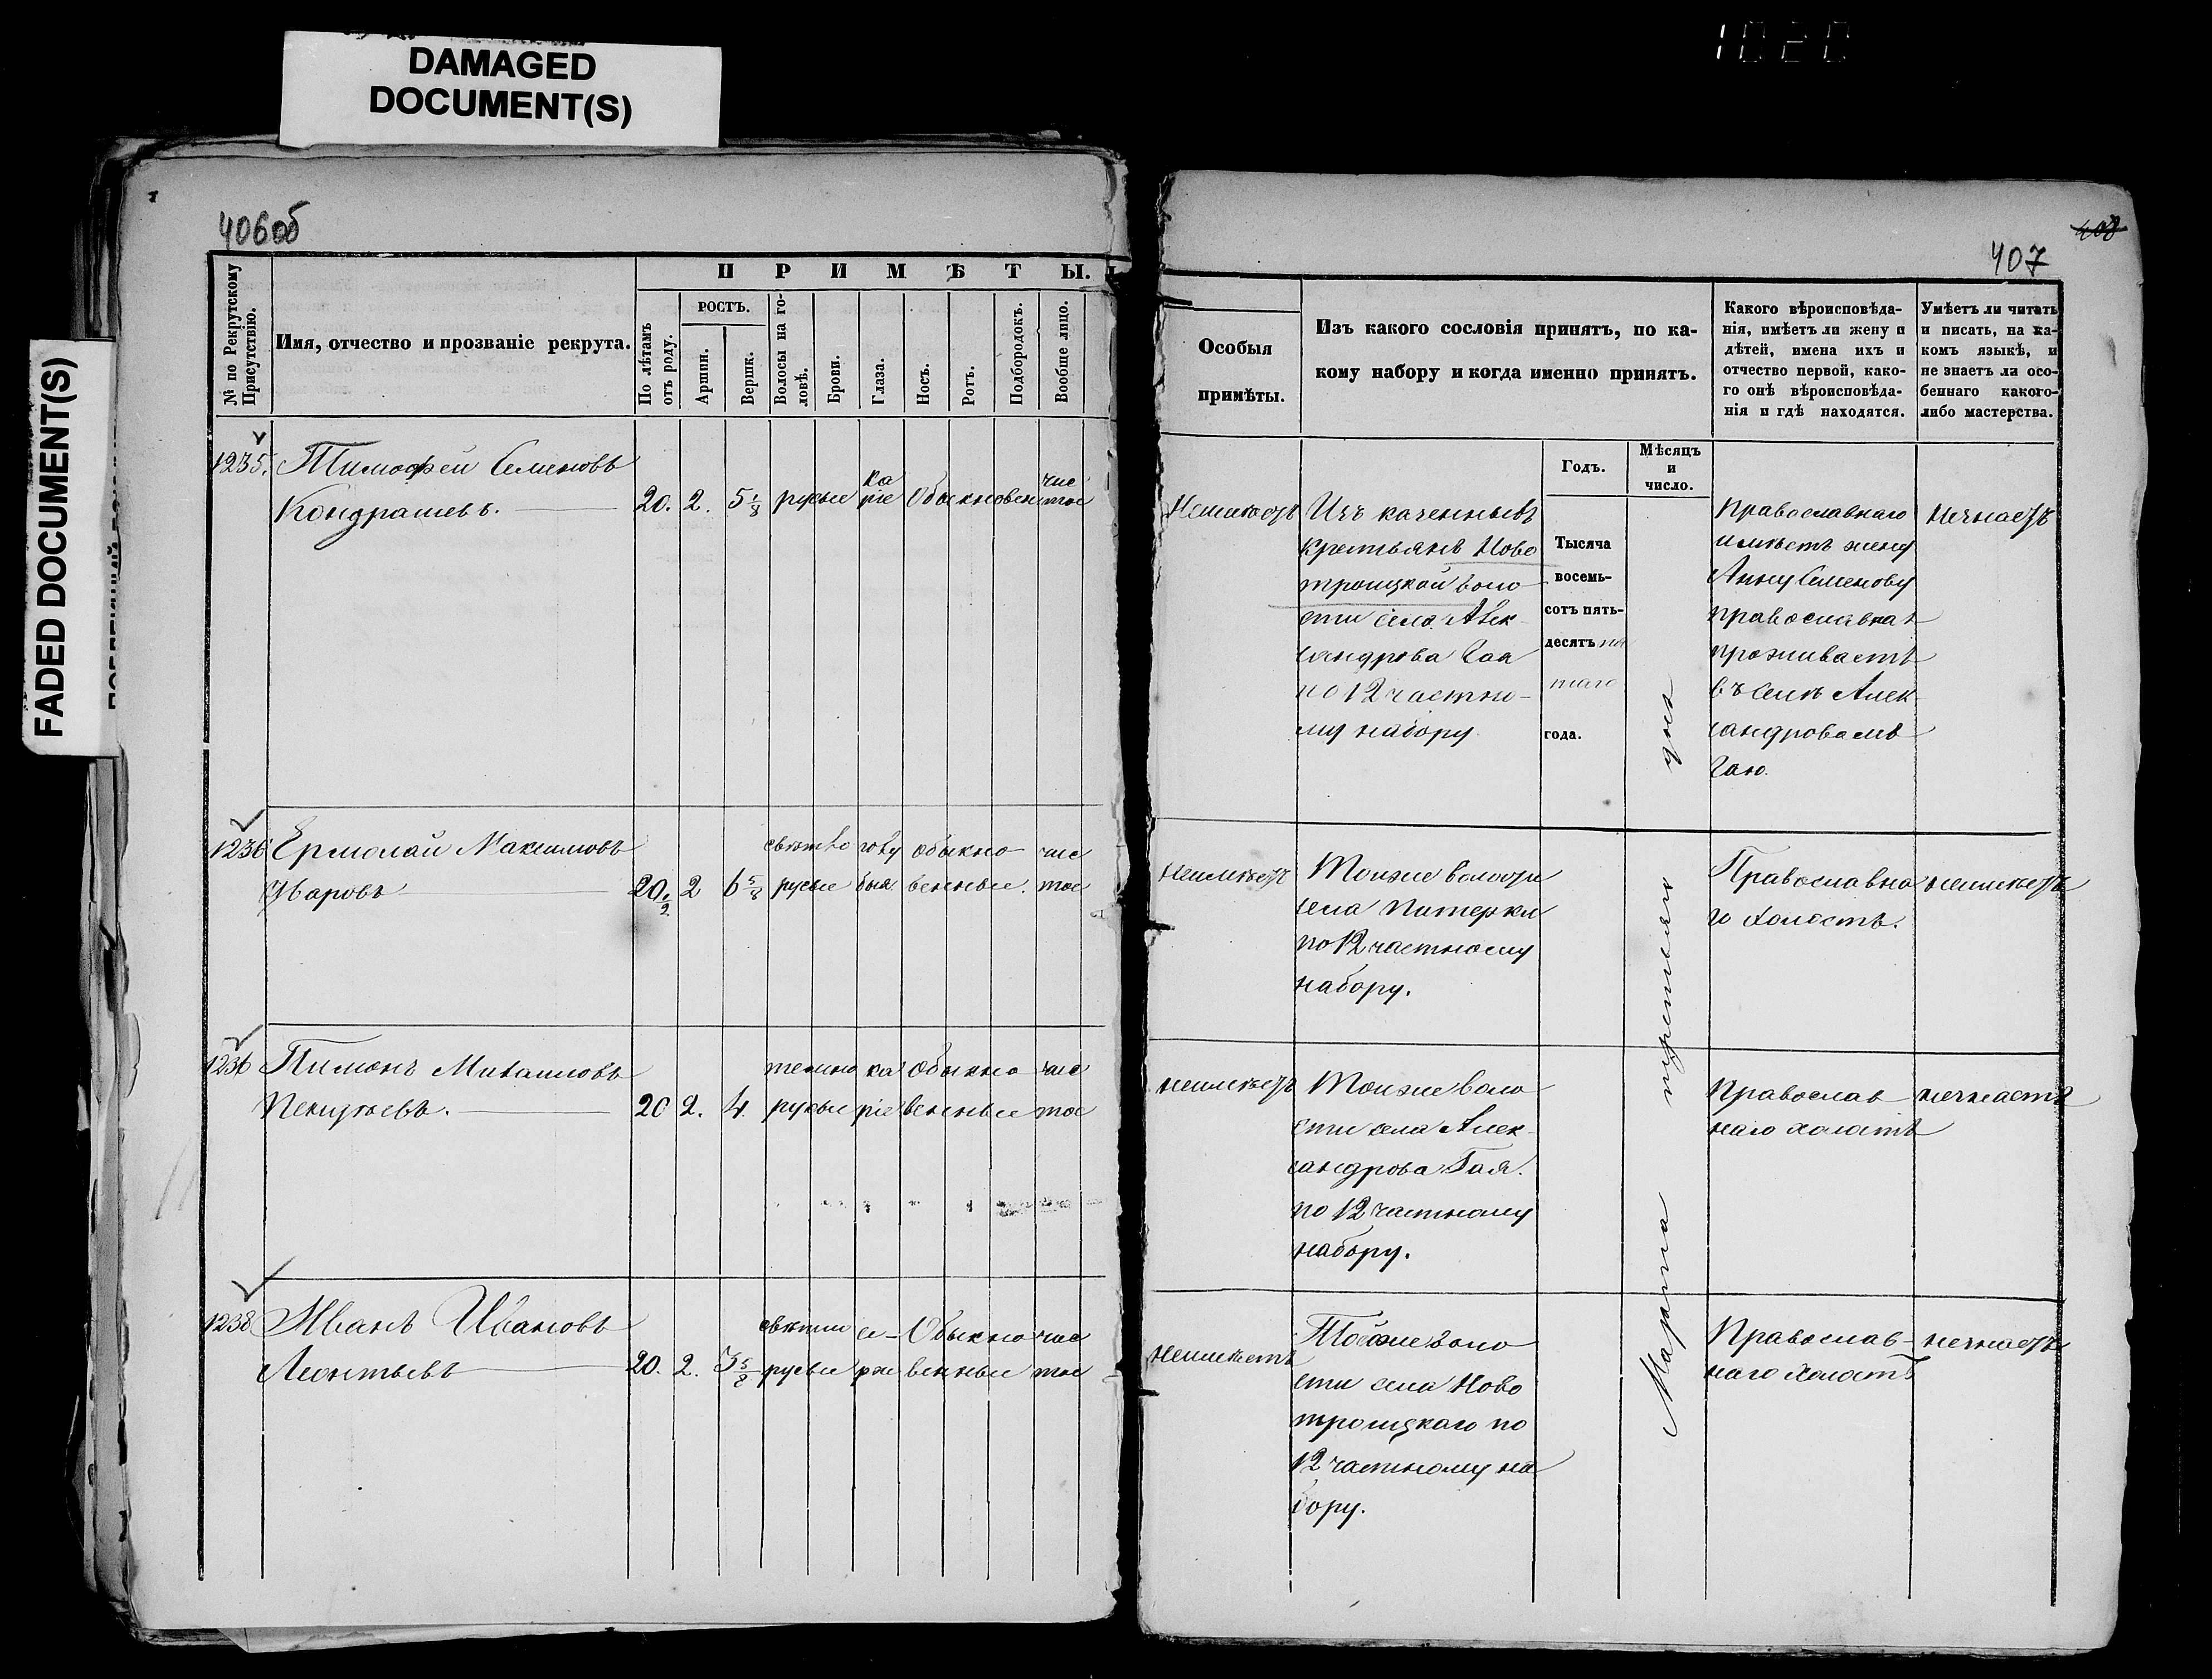 1020
DAMAGED
DOCUMENT(S)
FADED DOCUMENT(S)
406об
№ по Рекрутскому Присутствію.
Имя, отчество и прозваніе рекрута.
ПРИМѢТЫ.
По лѣтамъ отъ роду.
РОСТЪ.
Аршин.
Вершк.
Волосы на головѣ.
Брови.
Глаза.
Носъ.
Ротъ.
Подбородокъ.
Вообще лицо.
1235. Тимофей Семеновъ
Кондрашевъ. 20. 2. 5 1/8 русые карie Обыкновен чистое
1236 Ермолай Максимовъ свѣтло голу обыкно чис
Уваровъ 20. 2 6 5/8 русые бые. венные. тое
1236 Пимонъ Михаиловъ темно ка Обыкно чис
20 2. 4. русые рie венные тое
1238 Иванъ Ивановъ свѣтло се- Обыкно чис
Леонтьевъ 20. 2. 3 5/8 русые рые венные тое
408
407
Особыя
примѣты.
Изъ какого сословія принятъ, по ка-
кому набору и когда именно принятъ.
Какого вѣроисповѣда-
нія, имѣетъ ли жену и
дѣтей, имена ихъ и
отчество первой, како-
го онѣ вѣроисповѣда-
нія и гдѣ находятся.
Умѣетъ ли читать
и писать, на ка-
комъ языкѣ, и
не знаетъ ли осо-
беннаго какого-
либо мастерства.
Годъ.
Мѣсяцъ
и
число.
Неимѣетъ
Изъ казенныхъ
крестьянъ Ново
троицкой воло
сти села Алек
сандрова Гая
по 12 частно-
му набору
Тысяча
восемь-
сотъ пять-
десятъ пя
таго
года.
Марта третьяго дня
Православнаго
имѣетъ жену
Анну Семенову
православная
проживаетъ
въ селѣ Алек-
сандровомъ
Гаю.
Незнаетъ
неимѣетъ
Тойже волости
села Питерки
по 12 частному
набору.
Православна
го холостъ.
неимѣетъ
Тойже воло
сти села Алек-
сандрова Гая.
по 12 частному
набору.
Православ
наго холостъ
незнаетъ
неимѣетъ
Тойже воло
сти села Ново
троицкаго по
12 частному на
бору.
Православ-
наго холостъ
незнаетъ